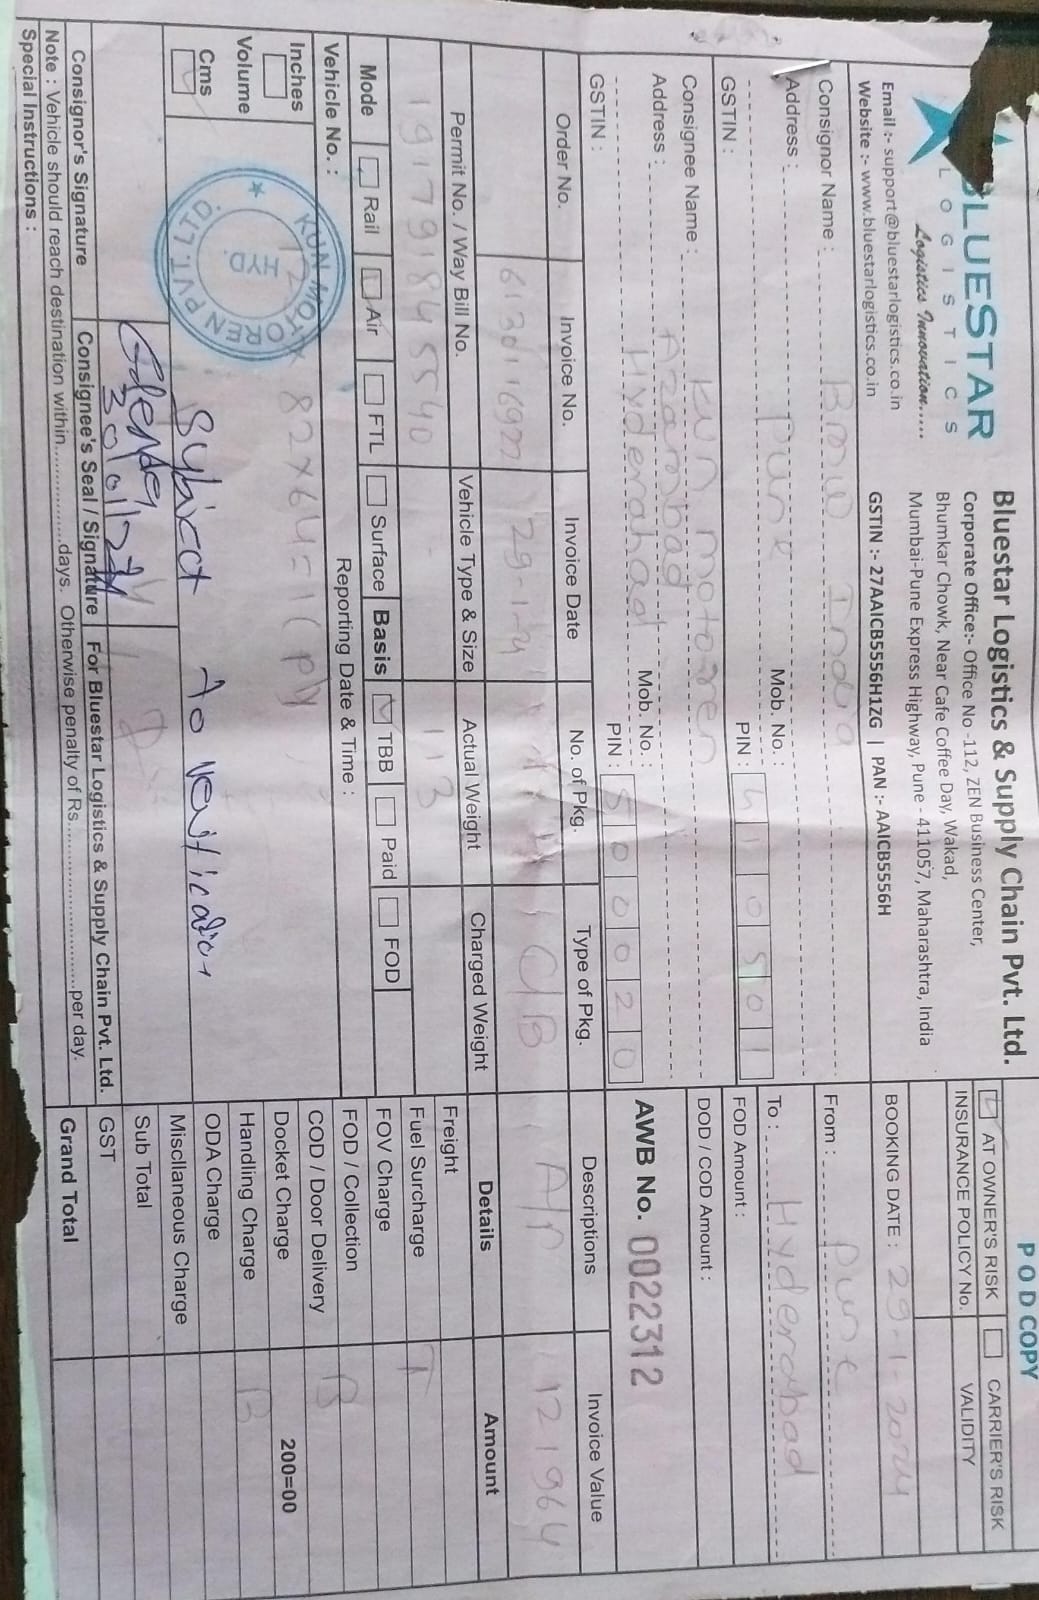 BLUESTAR
LOGISTICS
Logistics Innovation.....
Email :- support@bluestarlogistics.co.in
Website :- www.bluestarlogistics.co.in
Bluestar Logistics & Supply Chain Pvt. Ltd.
Corporate Office:- Office No -112, ZEN Business Center,
Bhumkar Chowk, Near Cafe Coffee Day, Wakad,
Mumbai-Pune Express Highway, Pune - 411057, Maharashtra, India
GSTIN :- 27AAICB5556H1ZG | PAN :- AAICB5556H
POD COPY
AT OWNER'S RISK CARRIER'S RISK
INSURANCE POLICY No. VALIDITY
BOOKING DATE : 29-1-2024
Consignor Name : BMW India
Address : Pune
Mob. No. :
PIN : 410501
GSTIN :
From : Pune
To : Hyderabad
FOD Amount :
DOD / COD Amount :
Consignee Name : KUN motoren
Address : Azambad
Hyderabad
Mob. No. :
PIN : 500020
GSTIN :
AWB No. 0022312
Order No. Invoice No. Invoice Date No. of Pkg. Type of Pkg. Descriptions Invoice Value
6130116922 29-1-24 C/B A/P 121964
Permit No. / Way Bill No. Vehicle Type & Size Actual Weight Charged Weight Details Amount
191791845540 - 113
Freight
Fuel Surcharge T
FOV Charge
FOD / Collection B
COD / Door Delivery
Docket Charge 200=00
Handling Charge B
ODA Charge
Miscllaneous Charge
Sub Total
GST
Grand Total
Mode Rail Air FTL Surface Basis TBB Paid FOD
Vehicle No. : Reporting Date & Time :
Inches
Volume
Cms
82x64=1(Ply
KUN MOTOREN PVT. LTD.
HYD.
Subject to verification
30/01/24
Consignor's Signature Consignee's Seal / Signature For Bluestar Logistics & Supply Chain Pvt. Ltd.
Note : Vehicle should reach destination within.................days. Otherwise penalty of Rs.............................per day.
Special Instructions :